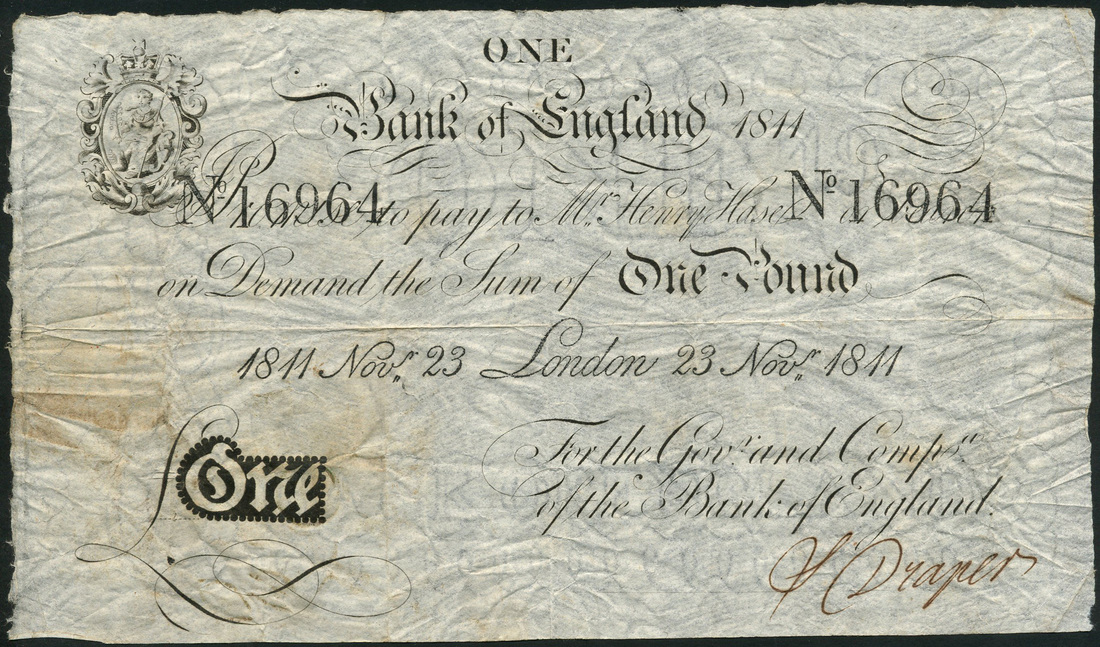 ONE
Bank of England 1811
Nº 16964 to pay to Mr. Henry Hase Nº 16964
on Demand the Sum of One Pound
1811 Novr. 23 London 23 Novr. 1811
For the Govr. and Compa.
of the Bank of England.
One
Draper